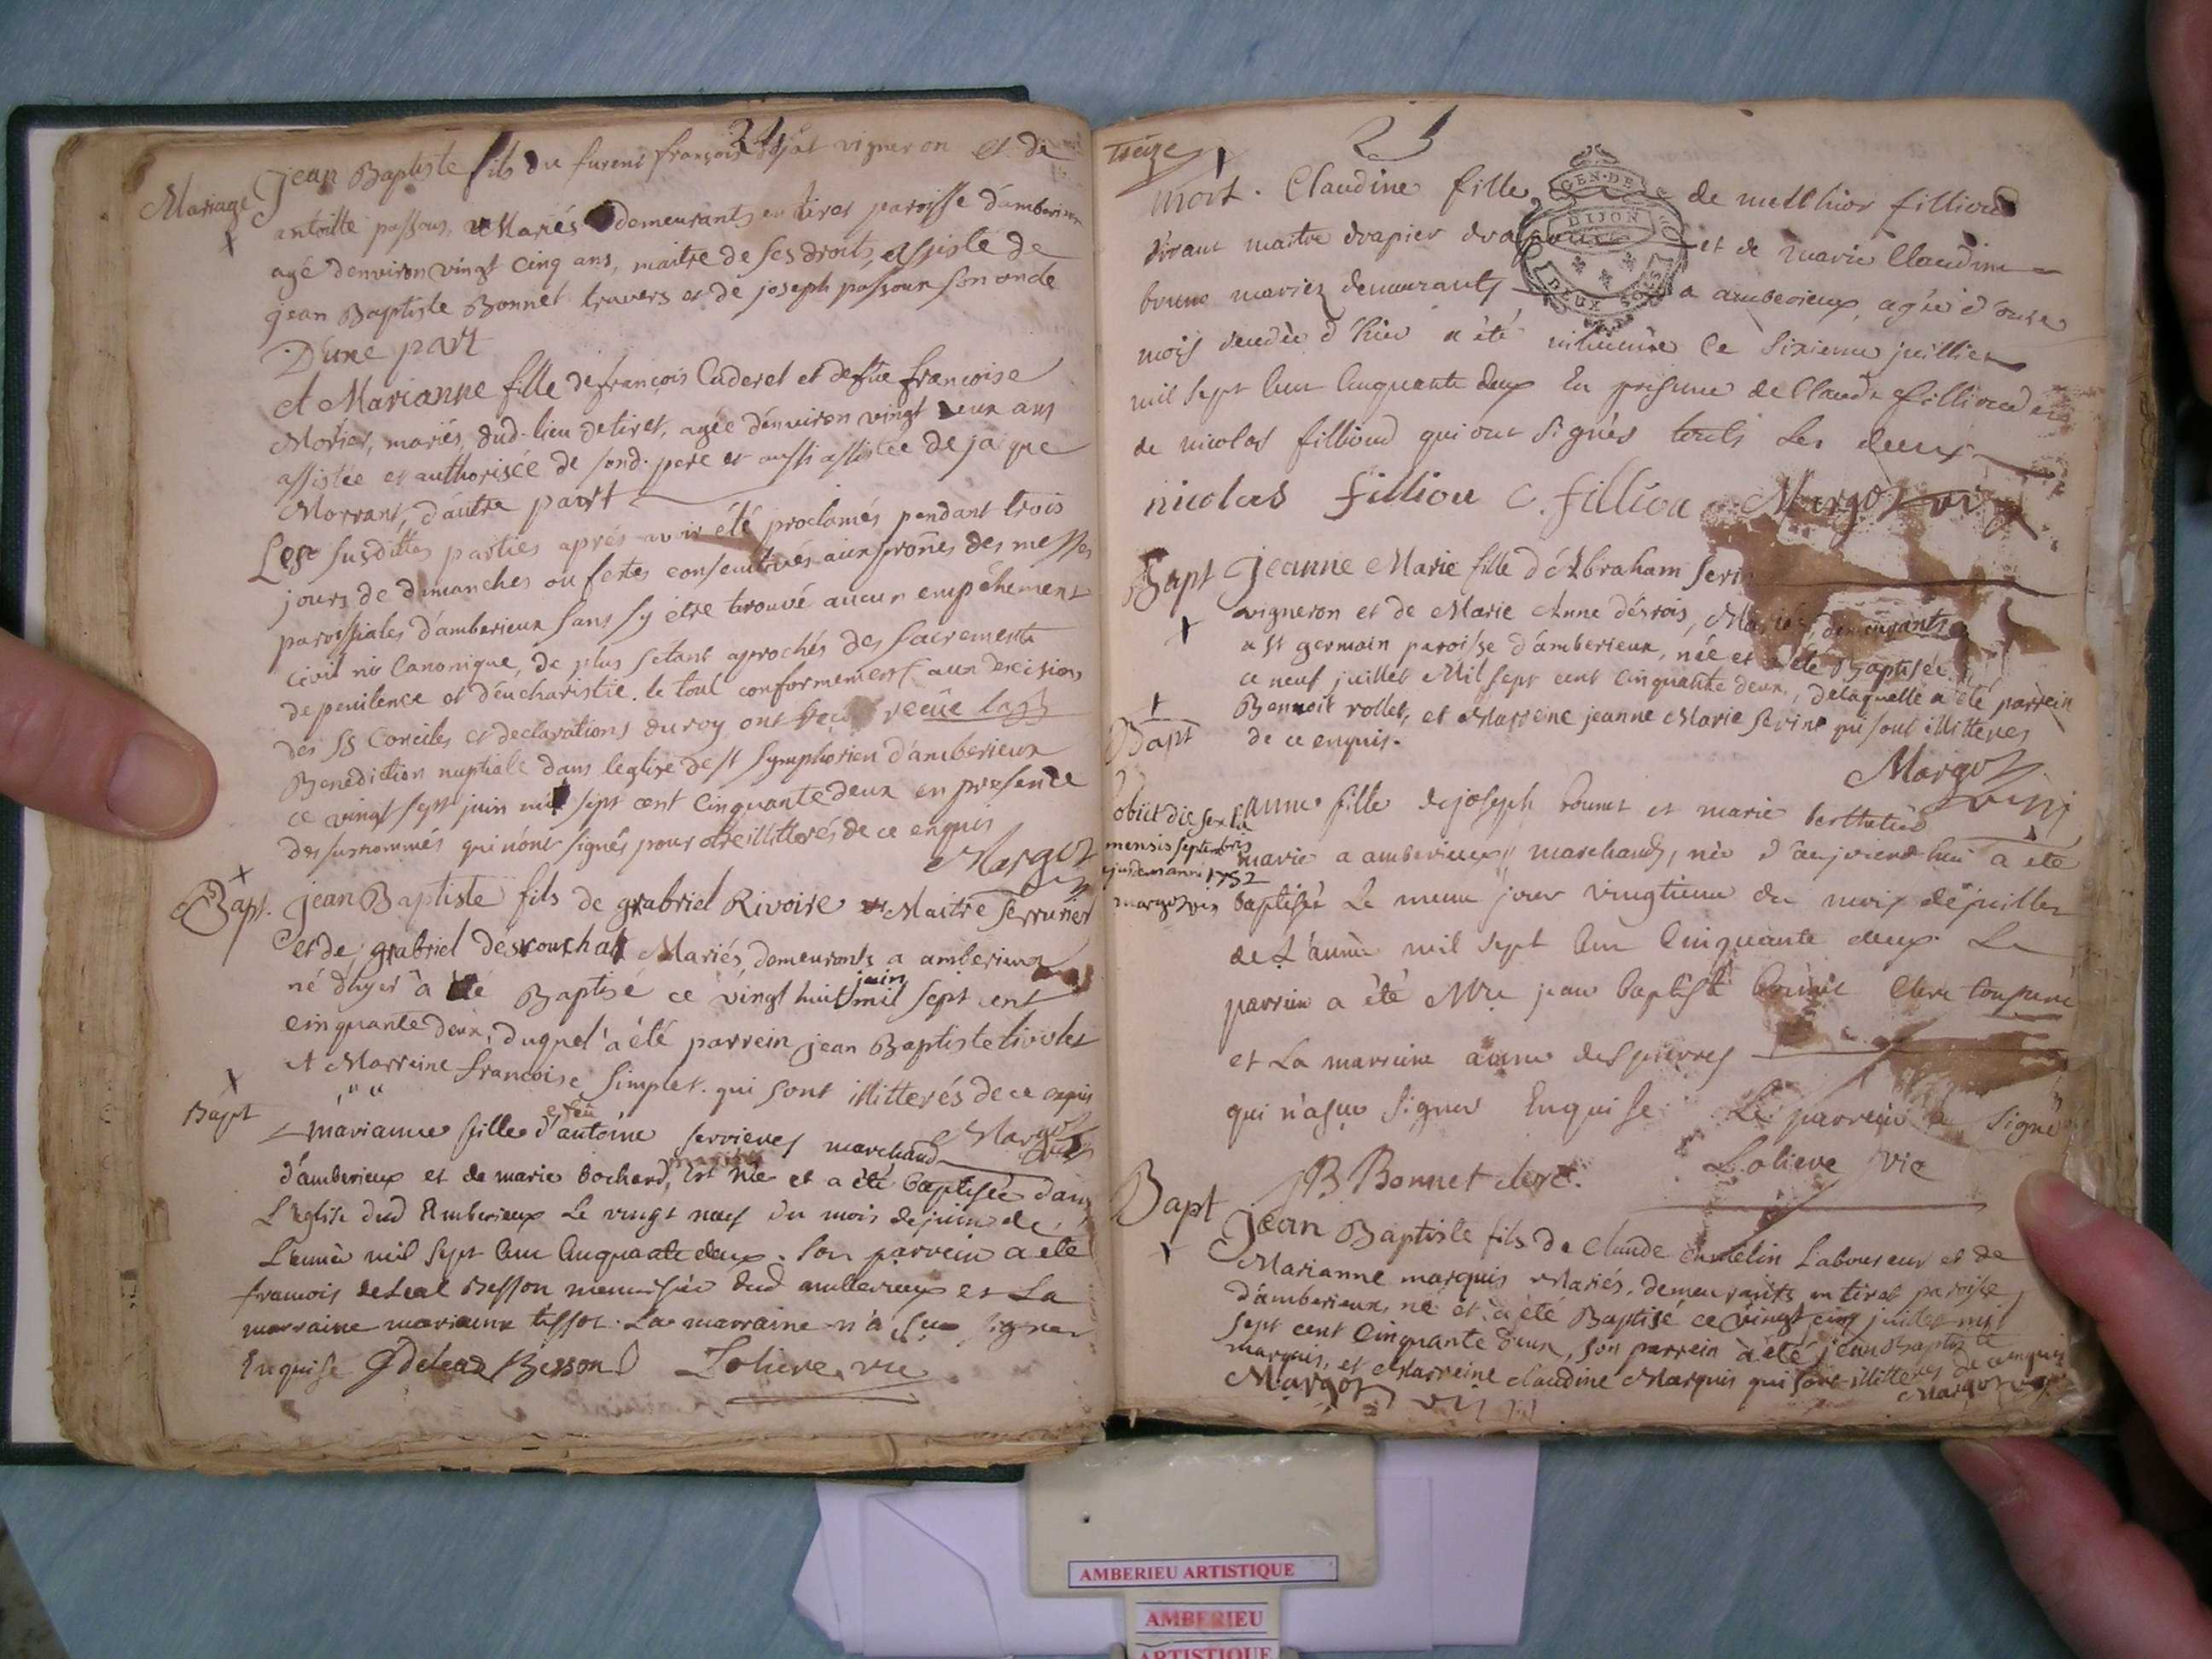 24
Mariage Jean Baptiste fils du furent françois vigneron et de
antoinette passour, Mariés demeurants en tiret paroisse d'amberieux
agé d'environ vingt cinq ans, maitre de ses droits, assisté de
jean Baptiste Bonnet travers et de joseph passour son oncle
D'une part
et Marianne fille de françois Cuderet et de fue francoise
Morier, mariés, dud. lieu de tiret, agée d'environ vingt deux ans
assistée et authorisée de sond. pere et aussi assistée de jaique
Morrant, d'autre part
Les susdittes parties aprés avoir été proclamés pendant trois
jours de dimanches ou festes consecutives aux prones des messes
paroissiales d'amberieux sans sy étre trouvé aucun empéhement
civil ni Canonique, de plus s'etant aprochés des sacrements
de penitence et d'eucharistie. le tout conformement aux decisions
des SS Conciles et declarations du roy ont recüe la
Benediction nuptiale dans leglise de st Symphorien d'amberieux
ce vingt sept juin mil sept cent cinquante deux en presence
des surnommés qui n'ont signés pour etre illitterés de ce enquis
Margot
Bapt. jean Baptiste fils de gabriel Rivoire Maitre serrurier
et de gabriel descouchat Mariés, demeurants a amberieux
né d'hyer a été Baptisé ce vingt huit juin mil sept cent
cinquante deux, duquel a été parrein jean Baptiste tivolet
et Marreine francoise simplet. qui sont illitterés de ce enquis
Margot
Bapt marianne fille d'antoine serrieres marchand
d'amberieux et de marie bochard, mariés est née et a été baptisée dans
L'eglise dud Amberieux Le vingt neuf du mois de juin de
L'année mil sept cent cinquante deux. son parrein a été
francois deleal Besson menuisier dud amberieux et La
marraine marianne tissot. La marraine n'a sçu signer
Enquise Besson Loliere vic
treize
25
mort. Claudine fille de melchior filliond
vivant maitre drapier et de marie Claudine
bruno mariez demeurants a amberieux, agée d'onze
mois decedée d'hier a été inhumée le sixieme juillier
mil sept cent cinquante deux En presence de Claude filliond et
de nicolas filliond qui ont signés touts les deux
nicolas filliou C. filliou Margot vic
Bapt Jeanne Marie fille d'Abraham
vigneron et de Marie Anne desrois, Mariés, demeurants
a st germain paroisse d'amberieux, née et a été Baptisée
ce neuf juillet Mil sept cent cinquante deux, delaquelle a été parrein
Bennoit rollet, et Marreine jeanne Marie serine qui sont illitteres
de ce enquis.
Margot
Bapt
anne fille de joseph bonnet et marie berthelier
obiit die sexta
mensis septembris
ejusdem anni 1752
margot vic
marié a amberieux marchands, née d'aujourd'hui a été
baptisée Le meme jour vingtieme du mois de juillet
de L'année mil sept cent cinquante deux. Le
parrein a été Mre jean baptiste bonnet Clerc tonsuré
et La marreine anne despierres
qui n'a sçu signer Enquise. Le parrein a signé
JB Bonnet clerc. Loliere vic
Bapt Jean Baptiste fils de Claude Laboureur et de
Marianne marquis Mariés, demeurants en tiret paroisse
d'amberieux, né et a été Baptisé ce vingt cinq juillet mil
sept cent Cinquante deux, son parrein a été jean Baptiste
marquis, et Marreine claudine Marquis qui sont illitteres de ce enquis
Margot Margot
AMBERIEU ARTISTIQUE
AMBERIEU
ARTISTIQUE